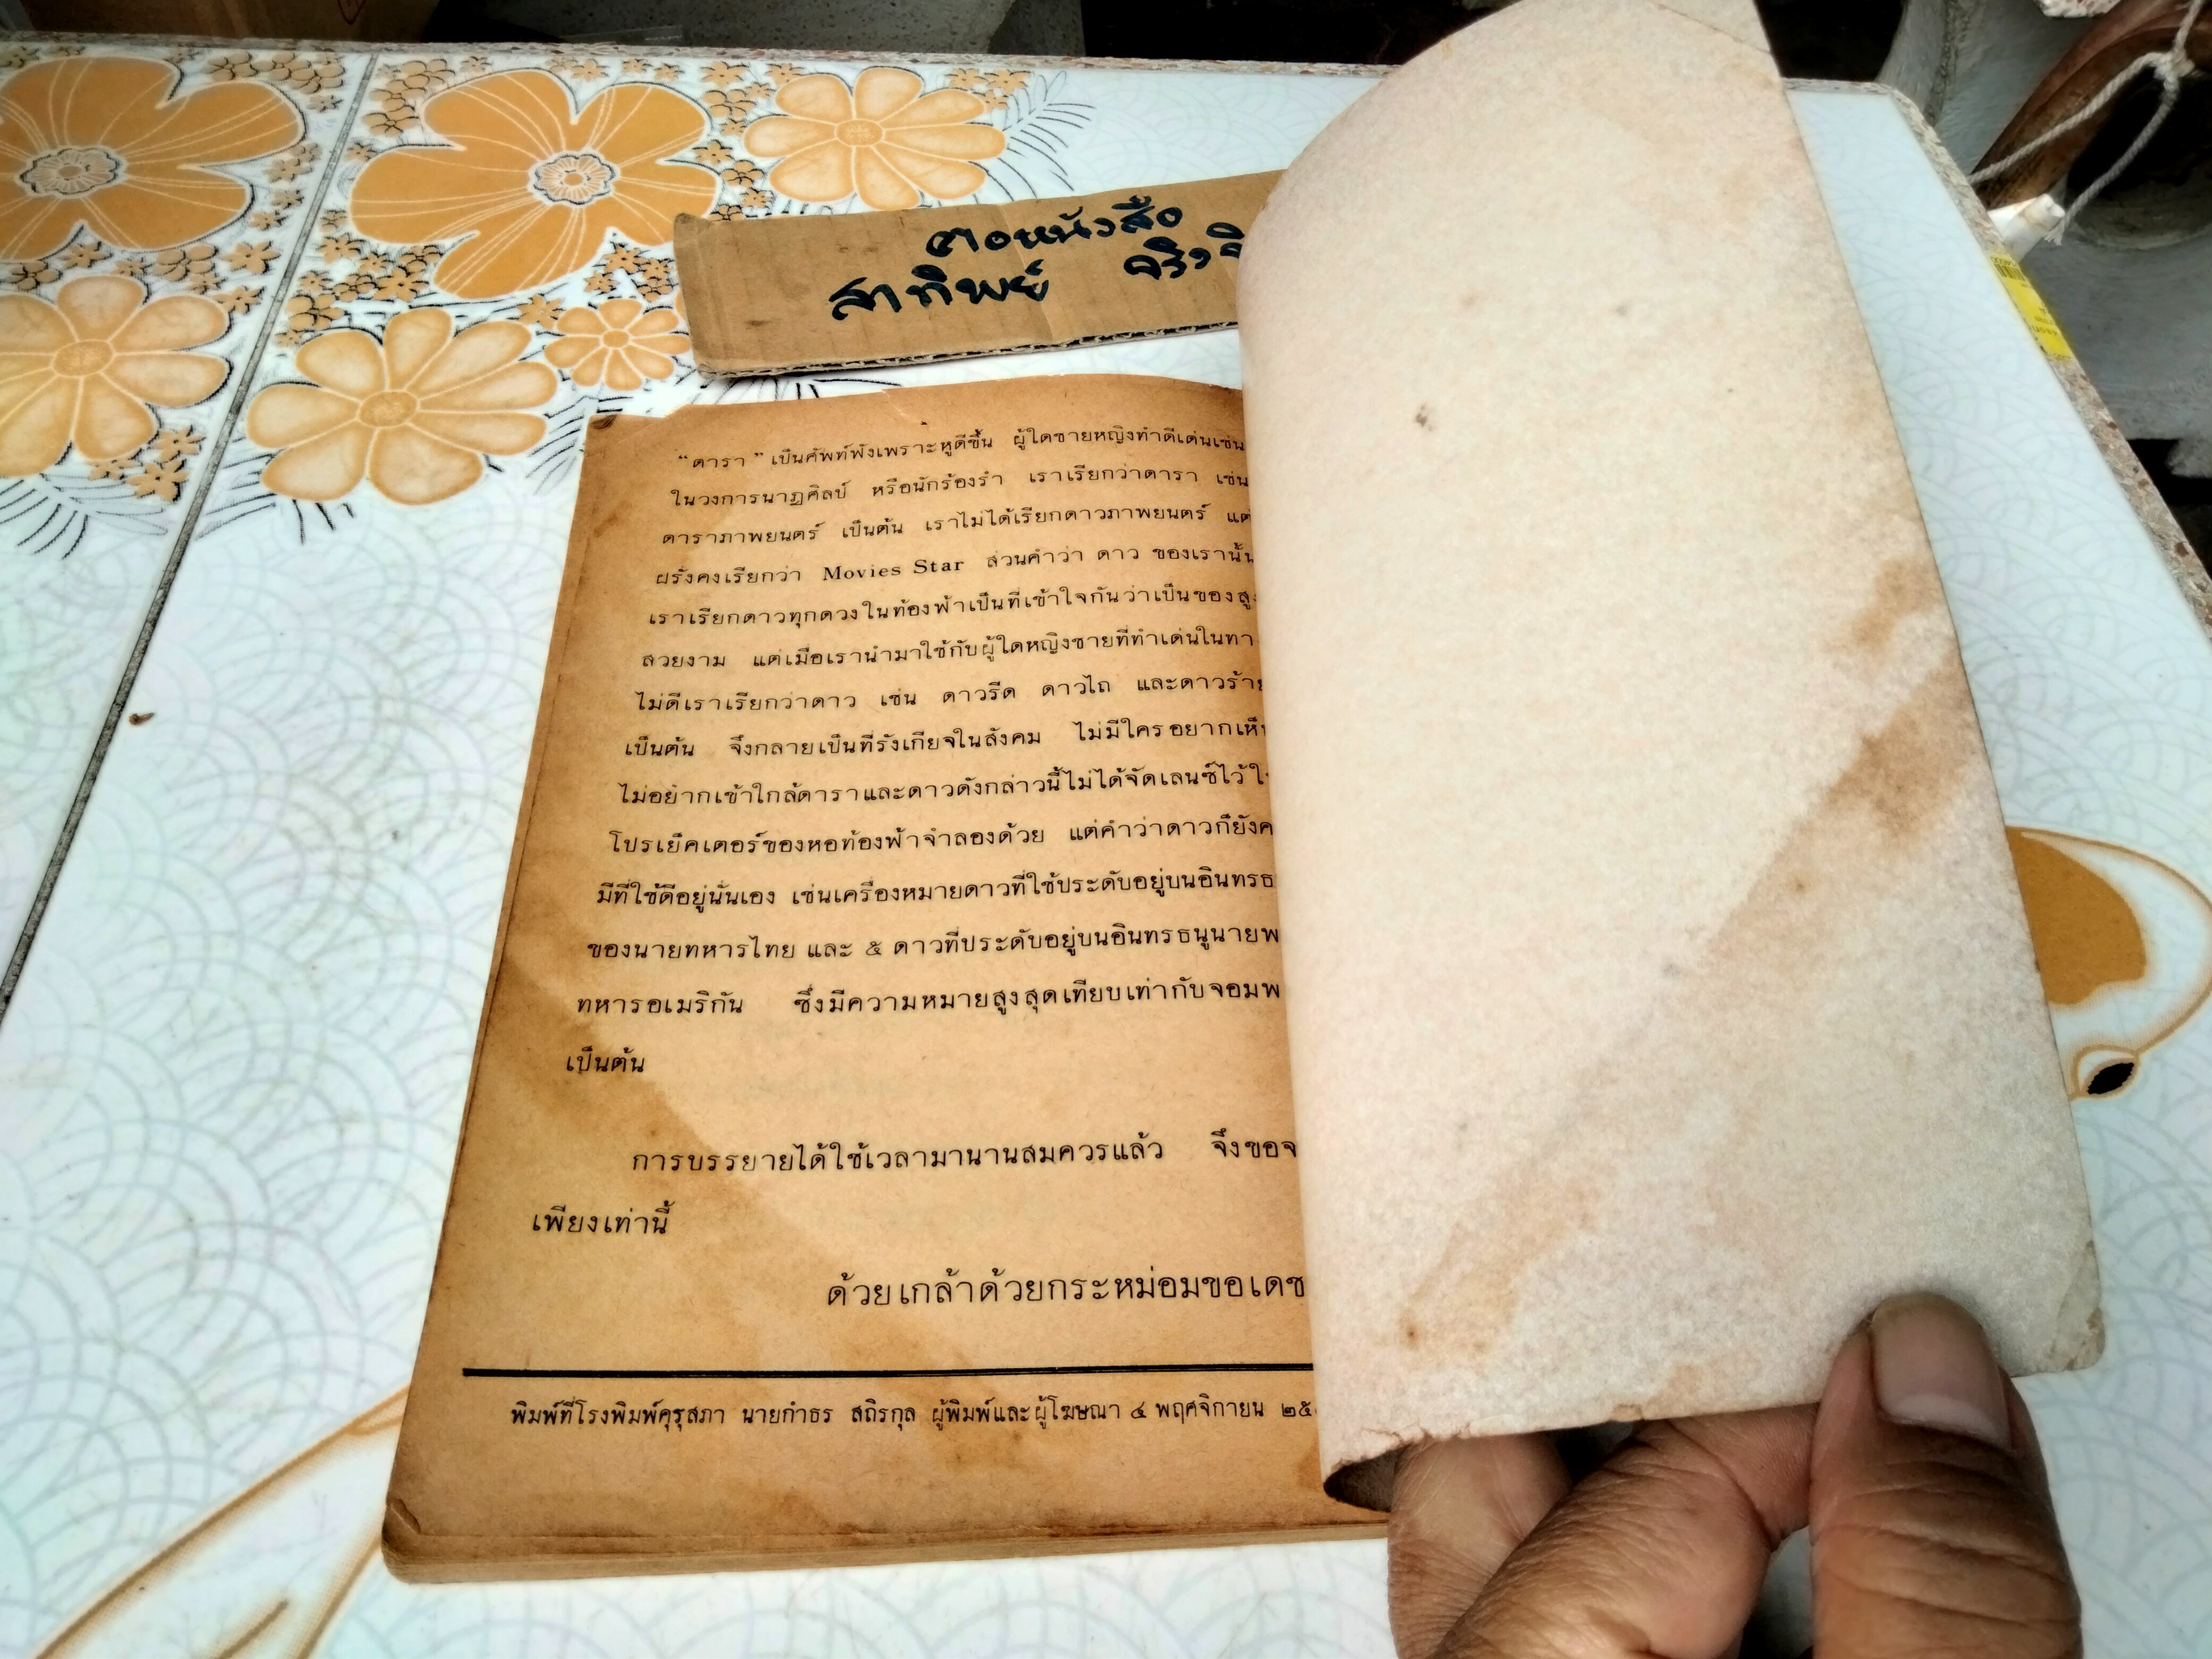 ตอหนังสือ
สาทิพย์
“ดารา” เป็นศัพท์ฟังเพราะหูดีขึ้น ผู้ใดชายหญิงทำดีเด่นเช่น
ในวงการนาฏศิลป์ หรือนักร้องรำ เราเรียกว่าดารา เช่น
ดาราภาพยนตร์ เป็นต้น เราไม่ได้เรียกดาวภาพยนตร์ แต่
ฝรั่งคงเรียกว่า Movies Star ส่วนคำว่า ดาว ของเรานั้น
เราเรียกดาวทุกดวงในท้องฟ้าเป็นที่เข้าใจกันว่าเป็นของสูง
สวยงาม แต่เมื่อเรานำมาใช้กับผู้ใดหญิงชายที่ทำเด่นในทา
ไม่ดีเราเรียกว่าดาว เช่น ดาวรีด ดาวไถ และดาวร้าย
เป็นต้น จึงกลายเป็นที่รังเกียจในสังคม ไม่มีใครอยากเห็น
ไม่อยากเข้าใกล้ดาราและดาวดังกล่าวนี้ไม่ได้จัดเลนซ์ไว้ใ
โปรเย็คเตอร์ของหอท้องฟ้าจำลองด้วย แต่คำว่าดาวก็ยังค
มีที่ใช้ดีอยู่นั่นเอง เช่นเครื่องหมายดาวที่ใช้ประดับอยู่บนอินทรธ
ของนายทหารไทย และ ๕ ดาวที่ประดับอยู่บนอินทรธนูนายพ
ทหารอเมริกัน ซึ่งมีความหมายสูงสุดเทียบเท่ากับจอมพ
เป็นต้น
การบรรยายได้ใช้เวลามานานสมควรแล้ว จึงขอจ
เพียงเท่านี้
ด้วยเกล้าด้วยกระหม่อมขอเดช
พิมพ์ที่โรงพิมพ์คุรุสภา นายกำธร สถิรกุล ผู้พิมพ์และผู้โฆษณา ๔ พฤศจิกายน ๒๕